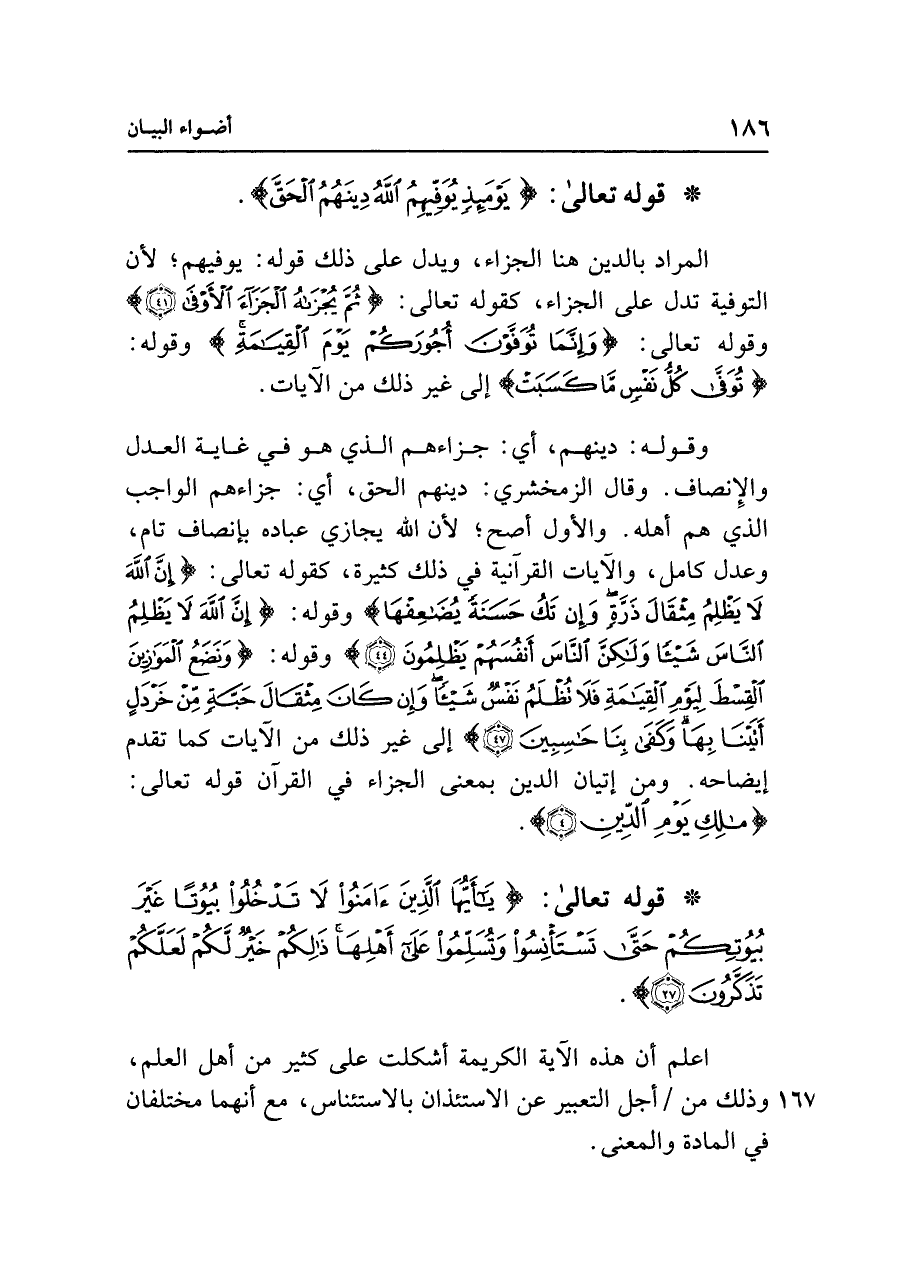 ١٨٦ أضـواء البيـان
* قوله تعالىٰ: ﴿ يَوْمَئِذٍ يُوَفِّيهِمُ ٱللَّهُ دِينَهُمُ ٱلْحَقَّ﴾ .
المراد بالدين هنا الجزاء، ويدل على ذلك قوله: يوفيهم؛ لأن
التوفية تدل على الجزاء، كقوله تعالى: ﴿ ثُمَّ يُجْزَىٰهُ ٱلْجَزَآءَ ٱلْأَوْفَىٰ ٤١﴾
وقوله تعالى: ﴿وَإِنَّمَا تُوَفَّوْنَ أُجُورَكُمْ يَوْمَ ٱلْقِيَـٰمَةِۗ ﴾ وقوله:
﴿ تُوَفَّىٰ كُلُّ نَفْسٍ مَّا كَسَبَتْ﴾ إلى غير ذلك من الآيات.
وقـولـه: دينهـم، أي: جـزاءهـم الـذي هـو فـي غـايـة العـدل
والإِنصاف. وقال الزمخشري: دينهم الحق، أي: جزاءهم الواجب
الذي هم أهله. والأول أصح؛ لأن الله يجازي عباده بإنصاف تام،
وعدل كامل، والآيات القرآنية في ذلك كثيرة، كقوله تعالى: ﴿ إِنَّ ٱللَّهَ
لَا يَظْلِمُ مِثْقَالَ ذَرَّةٍۖ وَإِن تَكُ حَسَنَةً يُضَـٰعِفْهَا﴾ وقوله: ﴿ إِنَّ ٱللَّهَ لَا يَظْلِمُ
ٱلنَّاسَ شَيْـًٔا وَلَـٰكِنَّ ٱلنَّاسَ أَنفُسَهُمْ يَظْلِمُونَ ٤٤﴾ وقوله: ﴿ وَنَضَعُ ٱلْمَوَٰزِينَ
ٱلْقِسْطَ لِيَوْمِ ٱلْقِيَـٰمَةِ فَلَا تُظْلَمُ نَفْسٌ شَيْـًٔاۖ وَإِن كَانَ مِثْقَالَ حَبَّةٍ مِّنْ خَرْدَلٍ
أَتَيْنَا بِهَاۗ وَكَفَىٰ بِنَا حَـٰسِبِينَ ٤٧﴾ إلى غير ذلك من الآيات كما تقدم
إيضاحه. ومن إتيان الدين بمعنى الجزاء في القرآن قوله تعالى:
﴿ مَـٰلِكِ يَوْمِ ٱلدِّينِ ٤﴾.
* قوله تعالىٰ: ﴿ يَـٰٓأَيُّهَا ٱلَّذِينَ ءَامَنُوا۟ لَا تَدْخُلُوا۟ بُيُوتًا غَيْرَ
بُيُوتِكُمْ حَتَّىٰ تَسْتَأْنِسُوا۟ وَتُسَلِّمُوا۟ عَلَىٰٓ أَهْلِهَاۚ ذَٰلِكُمْ خَيْرٌ لَّكُمْ لَعَلَّكُمْ
تَذَكَّرُونَ ٢٧﴾ .
اعلم أن هذه الآية الكريمة أشكلت على كثير من أهل العلم،
١٦٧ وذلك من / أجل التعبير عن الاستئذان بالاستئناس، مع أنهما مختلفان
في المادة والمعنى.